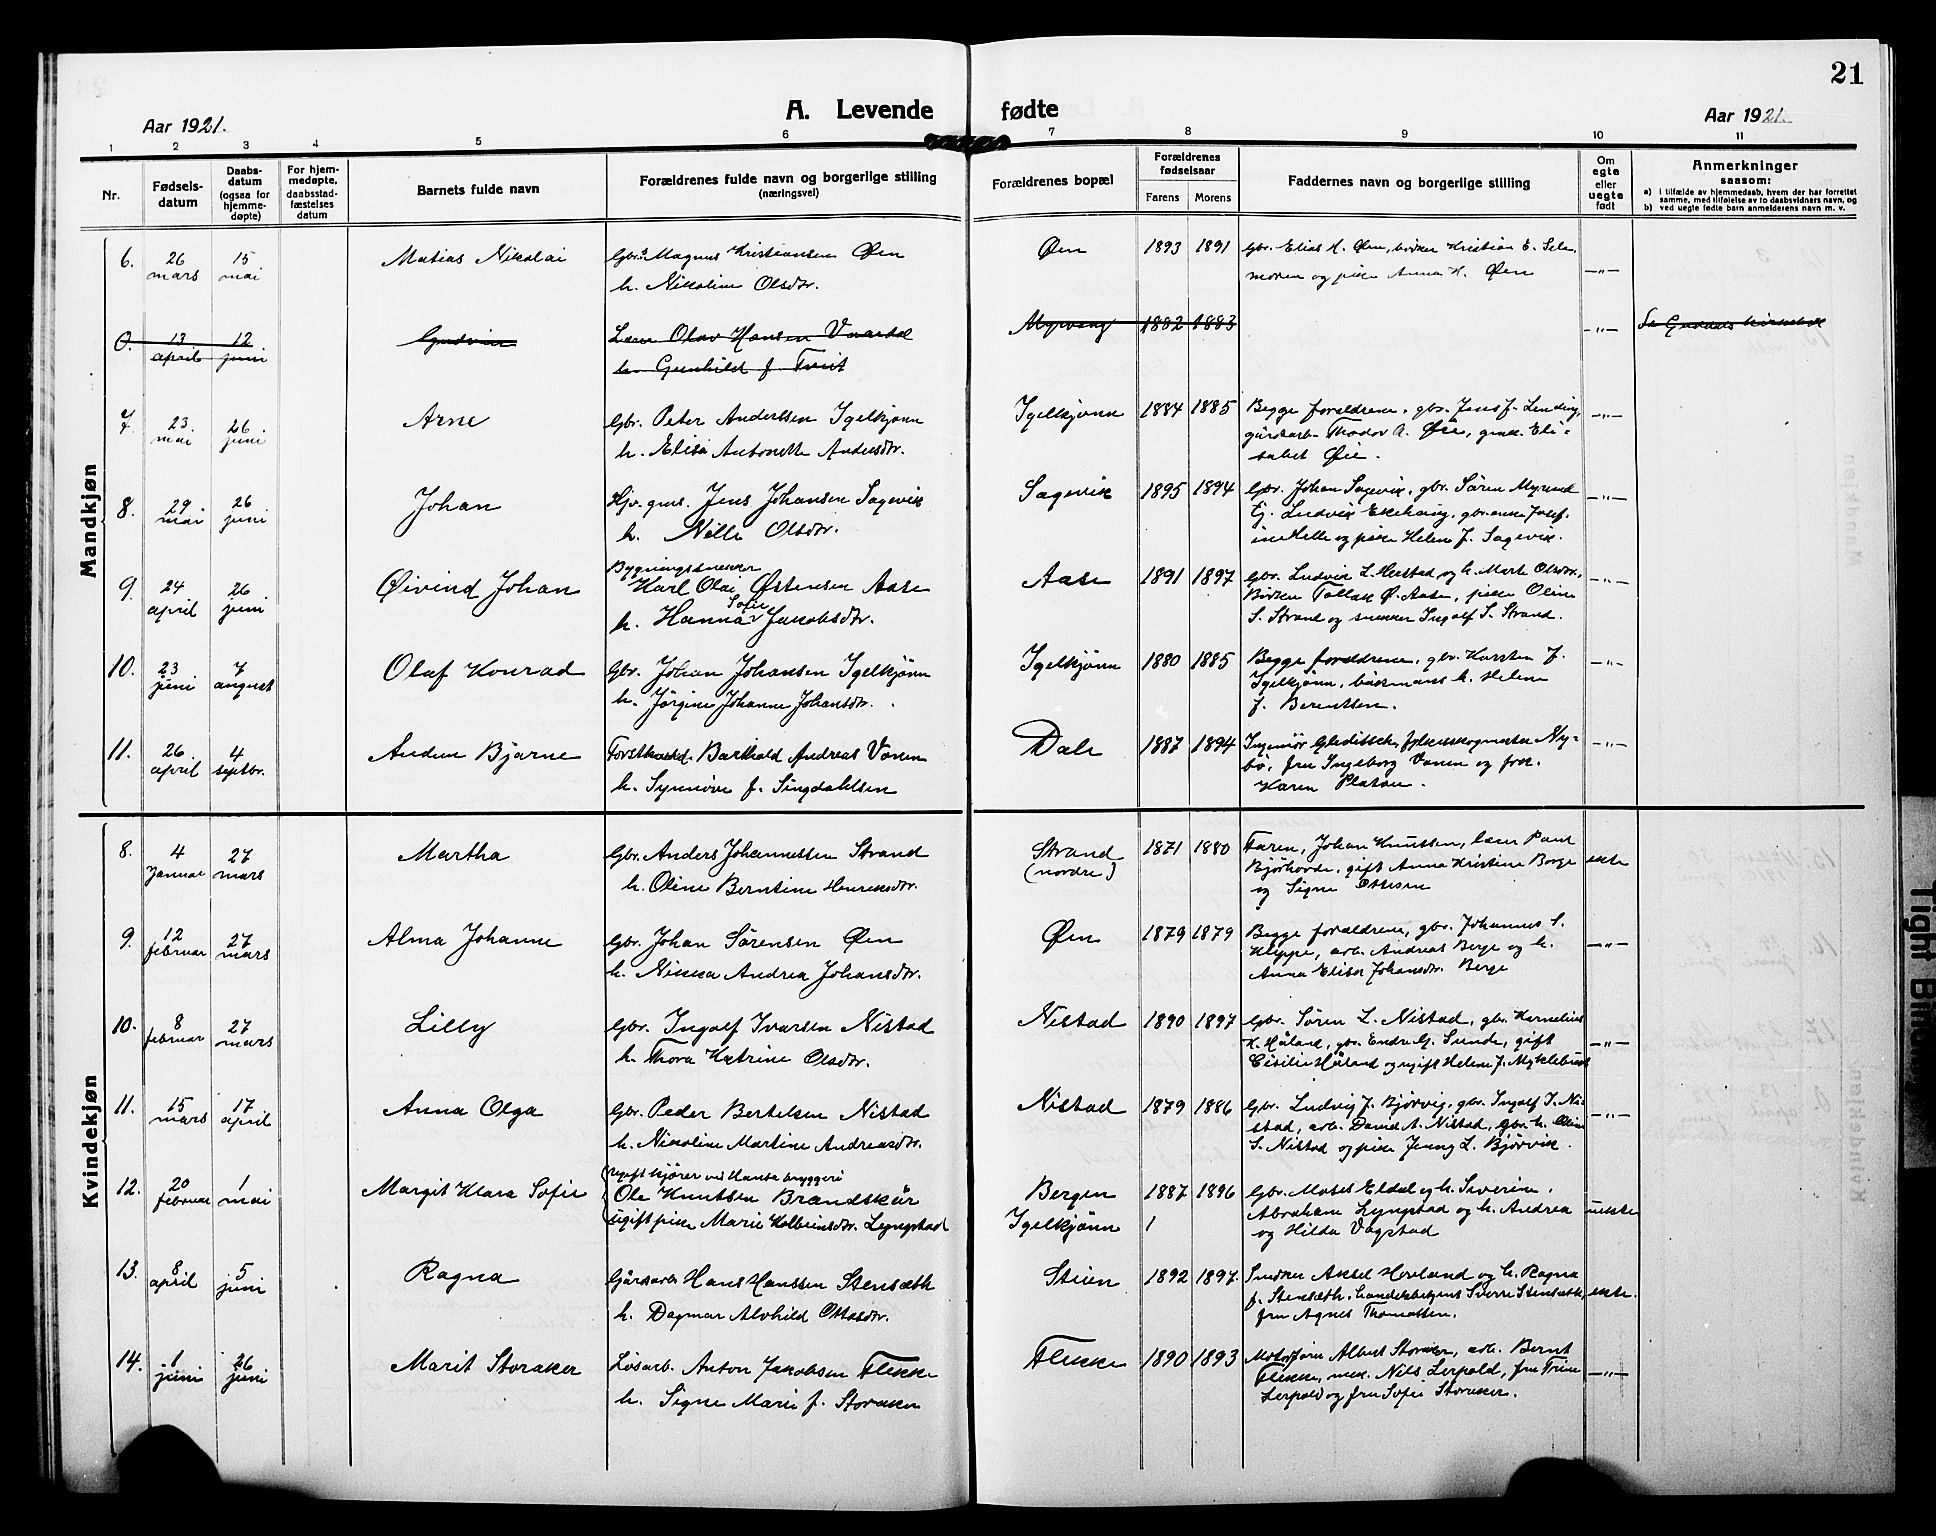 21
A. Levende fødte
Aar 1921. Aar 1921.
1 2 3 4 5 6 7 8 9 10 11
Nr. Fødselsdatum Daabsdatum (ogsaa for hjemmedøpte) For hjemmedøpte, daabsstadfæstelses datum Barnets fulde navn Forældrenes fulde navn og borgerlige stilling (næringsvei) Forældrenes bopæl Forældrenes fødselsaar Farens Morens Faddernes navn og borgerlige stilling Om egte eller uegte født Anmerkninger saasom:
a) I tilfælde av hjemmedaab, hvem der har forrettet samme, med tilføielse av to daabsvidners navn, og
b) ved uegte fødte barn anmelderens navn m. v.
Mandkjøn
6. 26 mars 15 mai Matias Nikolai Gbr. Magnus Kristiansen Øen Øen 1893 1891 Gbr. Elias H. Øen, Kristian E.
h. Nikoline Olsdtr. og pike Anna H. Øen —"—
0. 13 april 12 juni Lær. Olav Hansen Myrvang 1882 1883 —"—
h. Gunhild f. Tveit
7. 23. mai 26 juni Arne Gbr. Peter Anderssen Igelkjønn Igelkjønn 1884 1885 Begge forældrene, gbr. Jens J. —"—
h. Elisa Antonette Andersdtr. gårdarb. Thodor A. Øie, Eli-
sabet Øie.
8. 29 mai 26 juni Johan Jens Johansen Sagevik Sagevik 1895 1894 Gbr. Johan Sagevik, gbr. Søren —"—
h. Nelle Olsdtr. Ludvik
og pike Helene J. Sagevik.
9. 24 april 26 juni Øivind Johan Bygningssnekker
Karl Olai Østensen Aase Aase 1891 1897 Gbr. Ludvik L. og h. Marte Olsdtr., —"—
h. Hanna Sofie Jakobsdtr. Ø. Aase, pike Oline
S. Strand og snekker Ingolf S. Strand.
10. 23 juni 7 august Olaf Konrad Gbr. Johan Johansen Igelkjønn Igelkjønn 1880 1885 Begge forældrene, gbr. Karsten J. —"—
h. Jørgine Johanne Johansdtr. Igelkjønn, h. Helene
f. Berentsen.
11. 26 april 4 septbr. Bjarne Barthold Andreas Vonen Dale 1887 1894 Ingeniør Gleditsch, Ny- —"—
h. Synnöve f. Singdahlsen bö, fru Ingeborg Vonen og frk.
Karen Platou.
Kvindekjøn
8. 4 Januar 27 mars Martha Gbr. Anders Johannessen Strand Strand 1871 1880 Faren, Johan Knutsen, lærer Paul egte
h. Oline Berntine Henriksdtr. (nordre) gift Anna Kristine Borge
og Signe Ottesen
9. 12 februar 27 mars Alma Johanne Gbr. Johan Sørensen Øen Øen 1879 1879 Begge forældrene, gbr. Johannes S. —"—
h. Nikka Andrea Johansdtr. Kleppe, arb. Andreas Berge og h.
Anna Elise Johansdtr. Berge
10. 8 februar 27 mars Lilly Gbr. Ingolf Ivarsen Nistad Nistad 1890 1897 Gbr. Søren L. Nistad, gbr. Kornelius
h. Thora Katrine Olsdtr. K. Håland, gbr. Endre G. Sunde, gift —"—
Håland og ugift Helene J. Myklebust
11. 15 mars 17 april Anna Olga Gbr. Peder Bertelsen Nistad Nistad 1879 1886 Gbr. Ludvig J. Bjørvig, gbr. Ingolf I. Ni- —"—
h. Nikoline Martine Andreasdtr. stad, arb. David A. Nistad, gbr. h. Oline
S. Nistad og pike Jenny L. Bjørvik.
12. 20 februar 1 mai Margit Klara Sofie ugift kjører ved Hansa bryggeri
Ole Knutsen Brandskär Bergen 1887 1896 Gbr. Moses Eldal og h. Severine,
ugift pike Marie Kolbeinsdtr. Lyngstad Igelkjønn Abraham Lyngstad og h. Andrea uekte
og Hilda Vagstad
13. 8 april 5 juni Ragna Gårdarb. Hans Hanssen Stensæth Steien 1892 1897. Snekker Aksel Hovland og h. Ragna
h. Dagmar Alvhild Ottosdtr. f. Stensæth, handelsbetjent Sverre Stensæth, ekte.
fru Agnes Thomassen.
14. 1 juni 26 juni Marit Storaker Løsarb. Anton Jakobsen Flekke Flekke 1890 1893 Albert Storaker, arb. Bernt
h. Signe Marie f. Storaker Flekke, Nils Lerpold, fru Trine —"—
Lerpold og fru Sofie Storaker.
Tight Bin